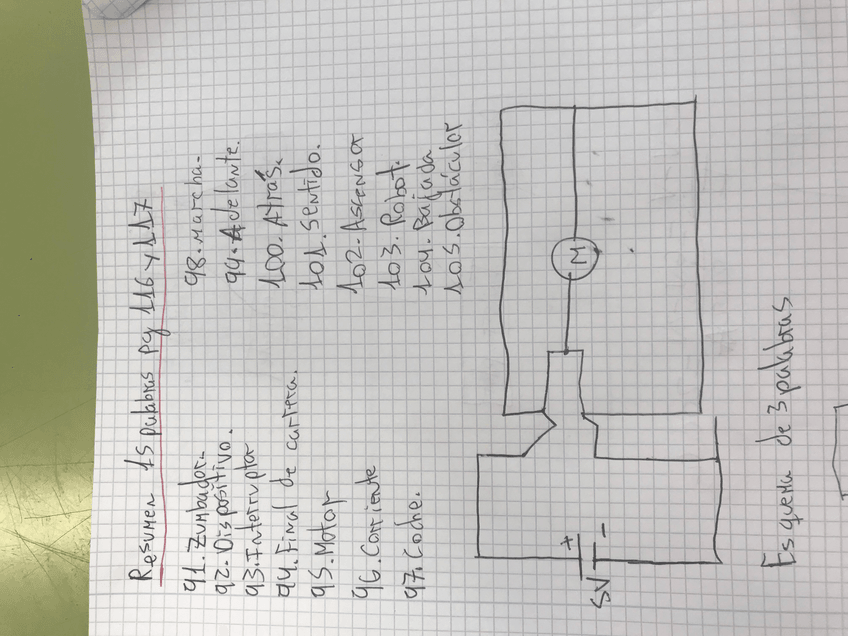 Resumen 15 palabras pg 116 y 117
91. Zumbador.
92. Dispositivo.
93. Interruptor
94. Final de carrera.
95. Motor
96. Corriente
97. Coche.
98. Marcha.
99. Adelante.
100. Atrás.
101. Sentido.
102. Ascensor
103. Robot.
104. Bajada
105. Obstáculor
M
+
-
5V
Esquema de 3 palabras